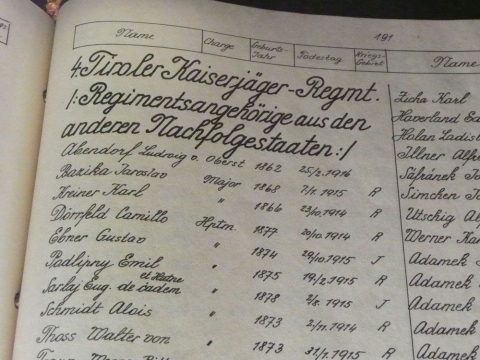 191
Name Charge Geburts-Jahr Todestag Kriegs-Gebiet
4. Tiroler Kaiserjäger-Regmt.
/: Regimentsangehörige aus den
anderen Nachfolgestaaten :/
Abendorf Ludwig v. Oberst 1862 25/2.1916
Bazika Jaroslav Major 1868 7/1.1915 R
Kreiner Karl " 1866 23/10.1914 R
Dörrfeld Camillo Hptm. 1877 20/10.1914 R
Ebner Gustav " 1874 29/10.1915 J
Podlipny Emil " 1875 19/2.1915 R
Sarlay Eug. de et Hutne Cadem " 1878 2/8.1915 J
Schmidt Alois " 1873 2/11.1914 R
Thoss Walter von " 1873 31/1.1915 R
Name
Zicha Karl
Haverland
Holan Ladis
Illner Alfr
Šafránek
Simchen
Utschig
Werner
Adamek
Adamek
Adamek
Adamek
Adamek